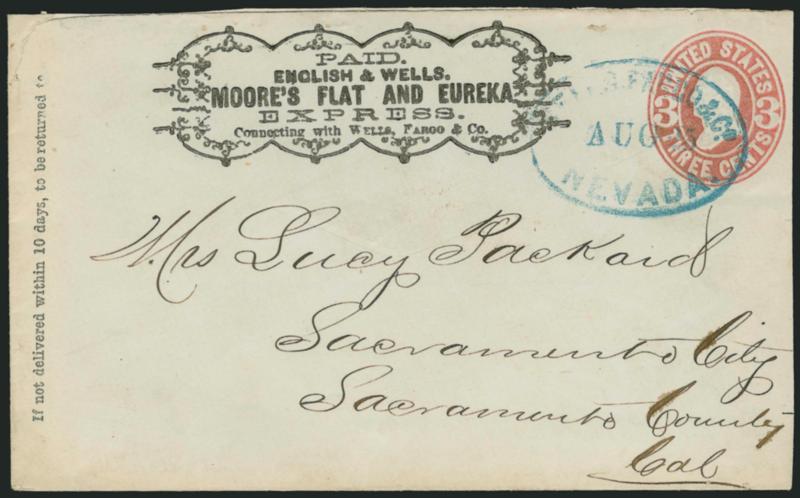 If not delivered within 10 days, to be returned to
PAID.
ENGLISH & WELLS.
MOORE'S FLAT AND EUREKA
EXPRESS.
Connecting with WELLS, FARGO & Co.
FARGO & Co
AUG
NEVADA.
UNITED STATES
3 3
THREE CENTS
Mrs Lucy Packard
Sacramento City
Sacramento County
Cal